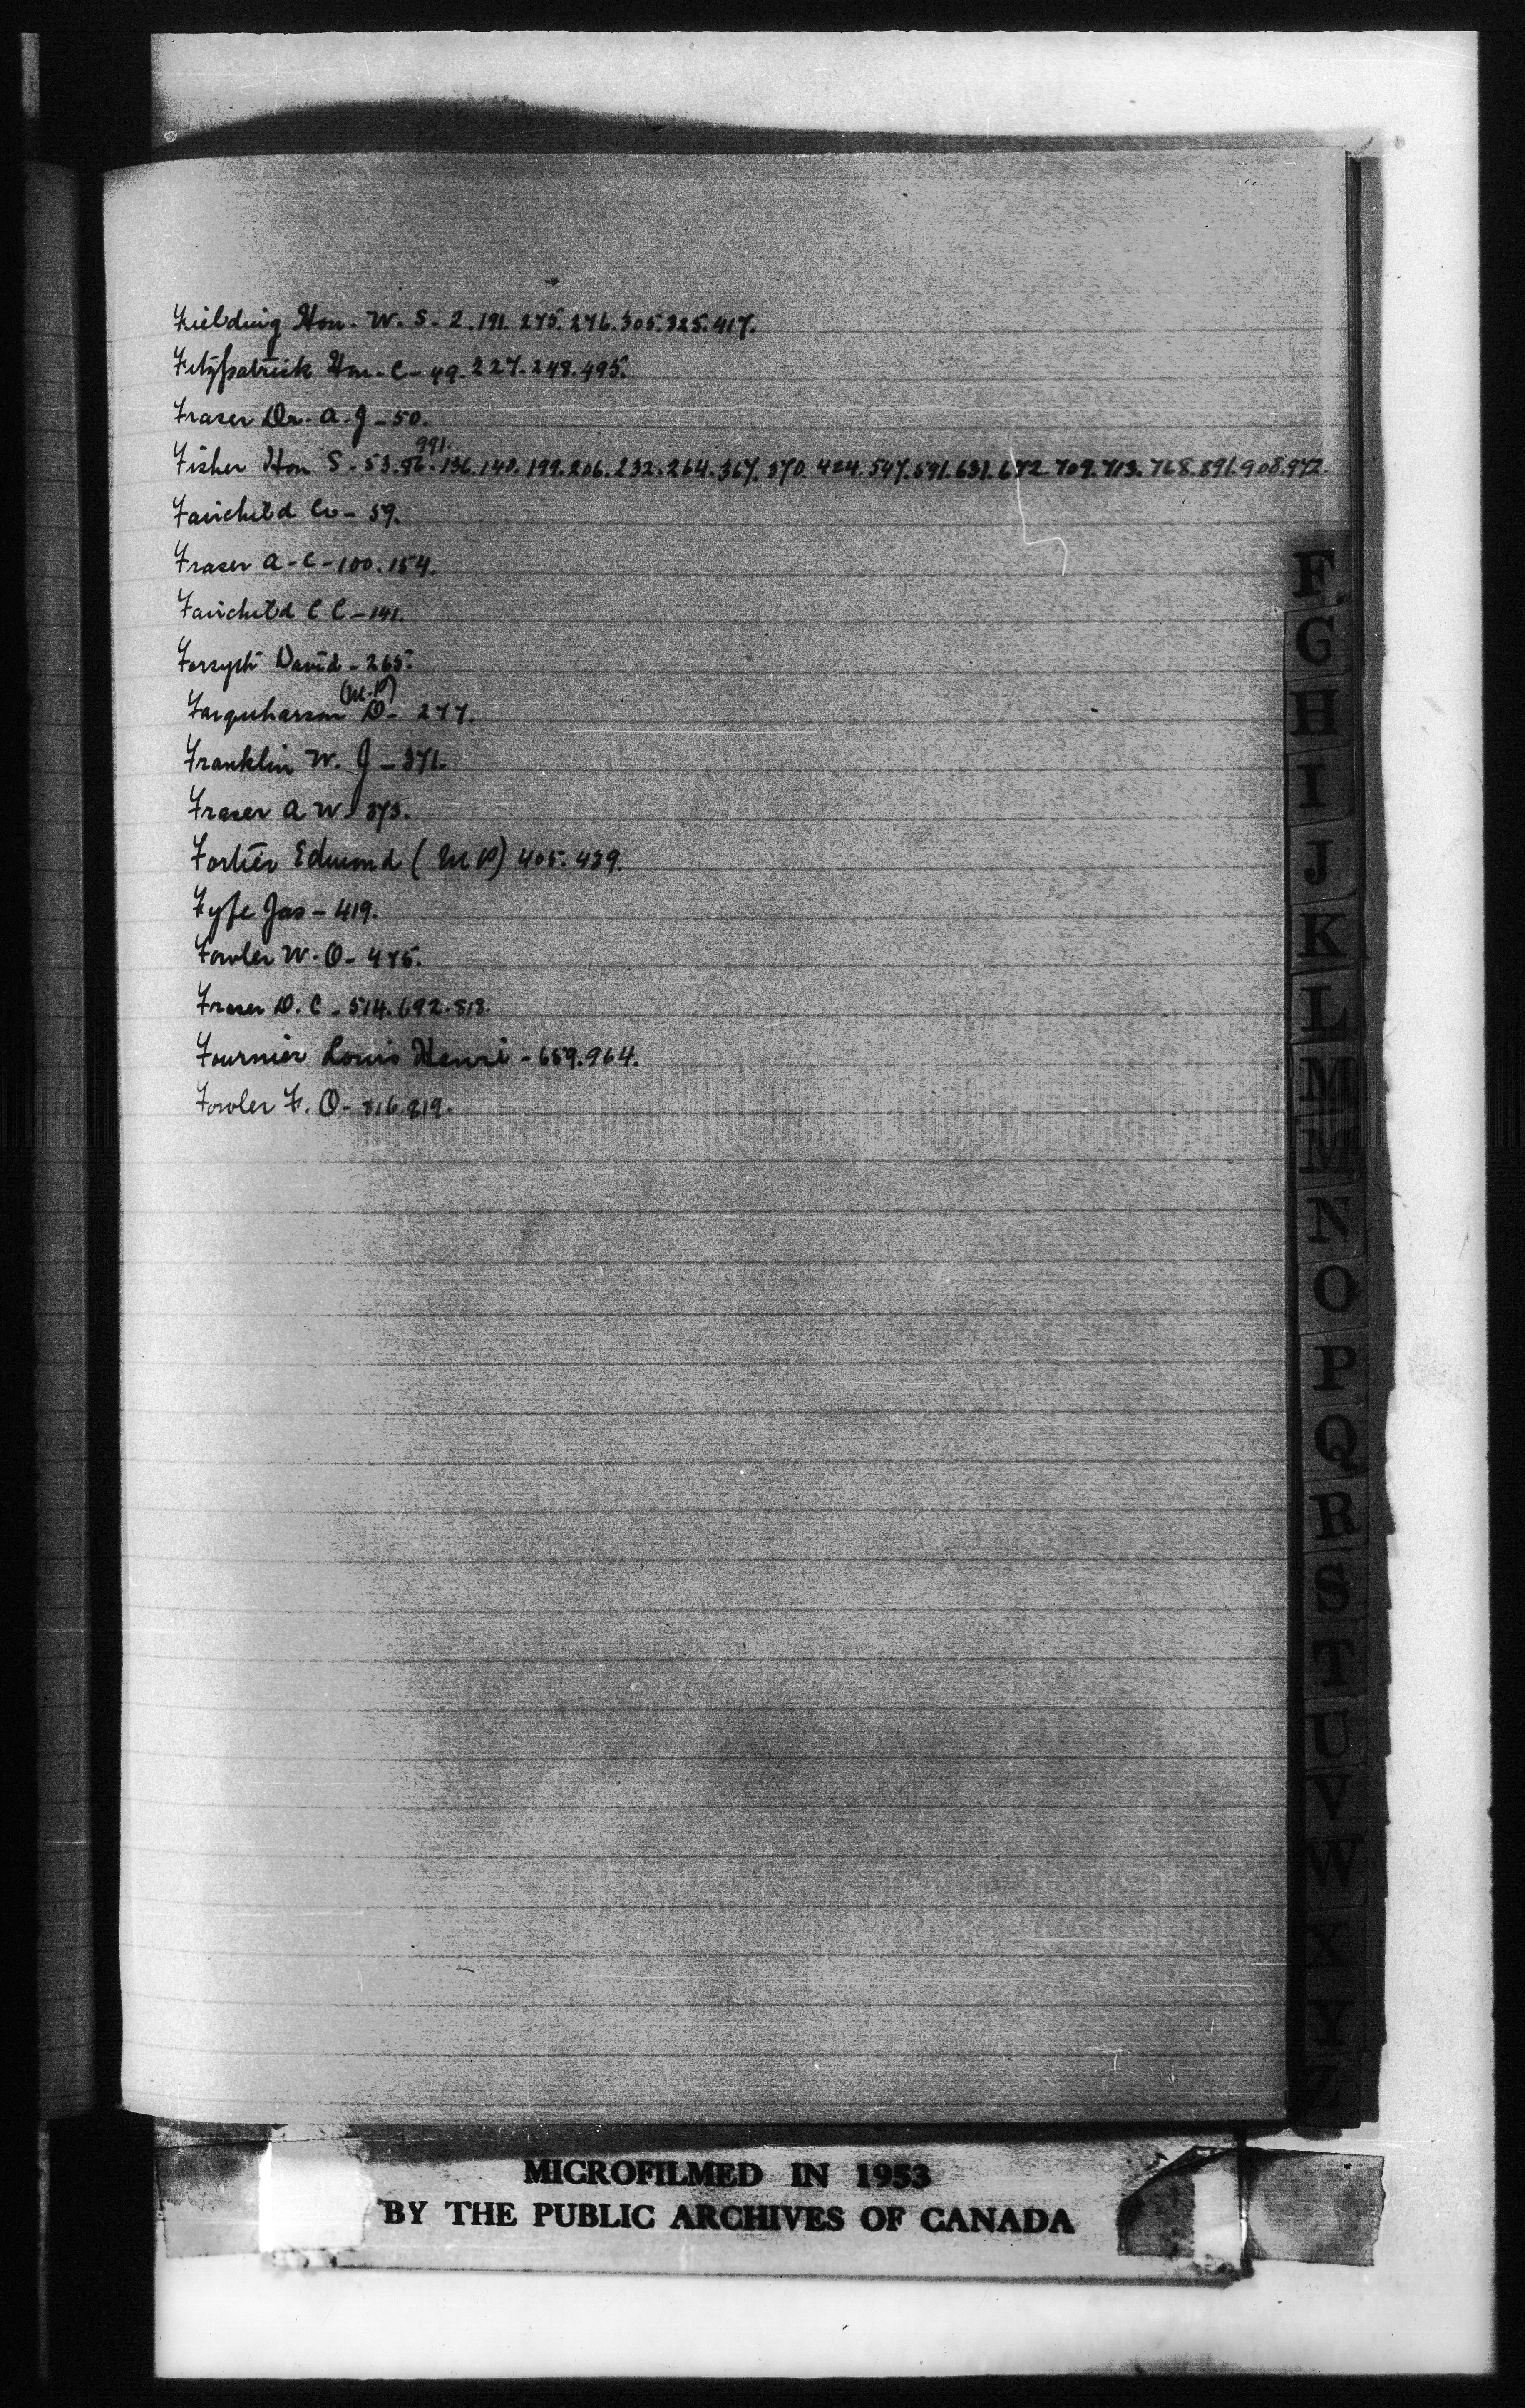 Fielding Hon. W. S. 2. 191. 275. 276. 305. 325. 417.
Fitzpatrick Hon. C - 49. 227. 248. 495.
Fraser Dr. A. J - 50.
991.
Fisher Hon S - 53. 86. 136. 140. 199. 206. 232. 264. 367. 370. 424. 547. 591. 631. 672. 709. 713. 768. 891. 908. 972.
Fairchild Co - 59.
Fraser A - C - 100. 154.
Fairchild C C - 141.
Forsyth David - 265.
(M.P)
Farquharson D - 277.
Franklin W. J - 371.
Fraser A W. 373.
Fortier Edmond (M P) 405. 439.
Fyfe Jas - 419.
Fowler W. O - 475.
Fraser D. C - 514. 692. 818.
Fournier Louis Henri - 659. 964.
Fowler F. O - 816. 819.
F
G
H
I
J
K
L
M
M
N
O
P
Q
R
S
T
U
V
W
X
Y
Z
MICROFILMED IN 1953
BY THE PUBLIC ARCHIVES OF CANADA